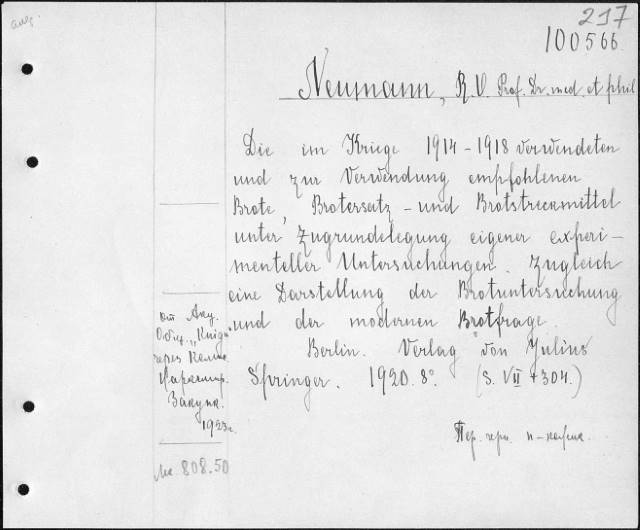 217
100566
Neumann, R. O. Prof. Dr. med. et phil
Die im Kriege 1914-1918 verwendeten
und zur Verwendung empfohlenen
Brote, Brotersatz- und Brotstreckmittel
unter Zugrundelegung eigener experi-
menteller Untersuchungen. Zugleich
eine Darstellung der Brotuntersuchung
und der modernen Brotfrage.
Berlin. Verlag von Julius
Springer. 1920. 8° (S. VII + 304.)
от Акц.
Общ. "Книга"
через
Закупк.
1923г.
Мк. 808.50
Пер. черн.